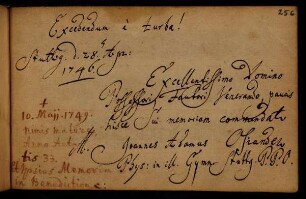 256
Excedendum è turba!
Stuttg. d. 28. Apr:
1746.
Excellentissimo Domino
Possessori Fautori Venerando paucis
hisce Sui memoriam commendat
M. Joannes Adamus Osiander
Phys: in ill. Gymn Stuttg. P. P. O.
+
10. Maji. 1749.
nimis mature
Anno Aeta-
tis 33.
Memoria
in Benedictione: